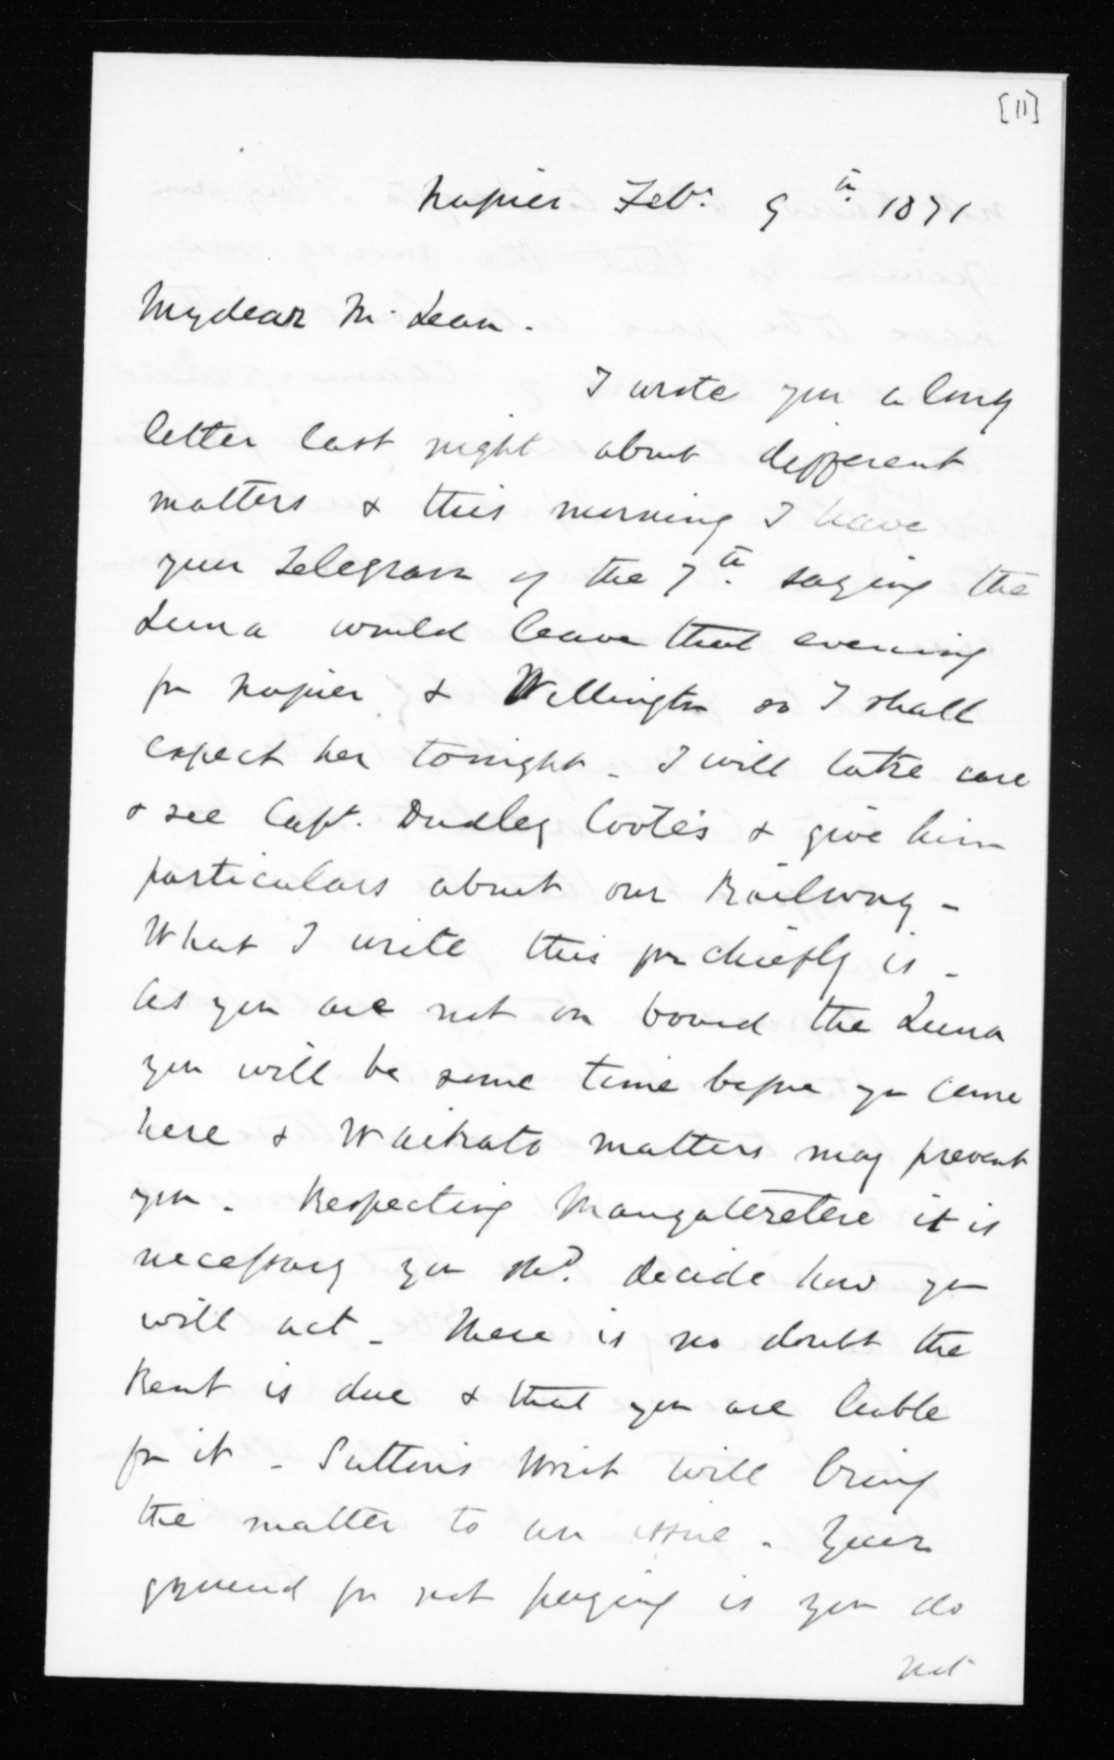 [11]
Napier Feby. 9th. 1871
My dear McLean.
I wrote you a long
letter last night about different
matters & this morning I have
your Telegram of the 7th. saying the
Luna would leave that evening
for Napier & Wellington so I shall
expect her tonight. I will take care
& see Capt. Dudley Coote's & give him
particulars about our Railway -
What I write this for chiefly is -
as you are not on board the Luna
you will be some time before you come
here & Waikato matters may prevent
you. Respecting Mangateretere it is
necessary you shd. decide how you
will act. There is no doubt the
Rent is due & that you are liable
for it - Sutton's Writ will bring
the matter to an issue. Your
ground for not paying is you do
not